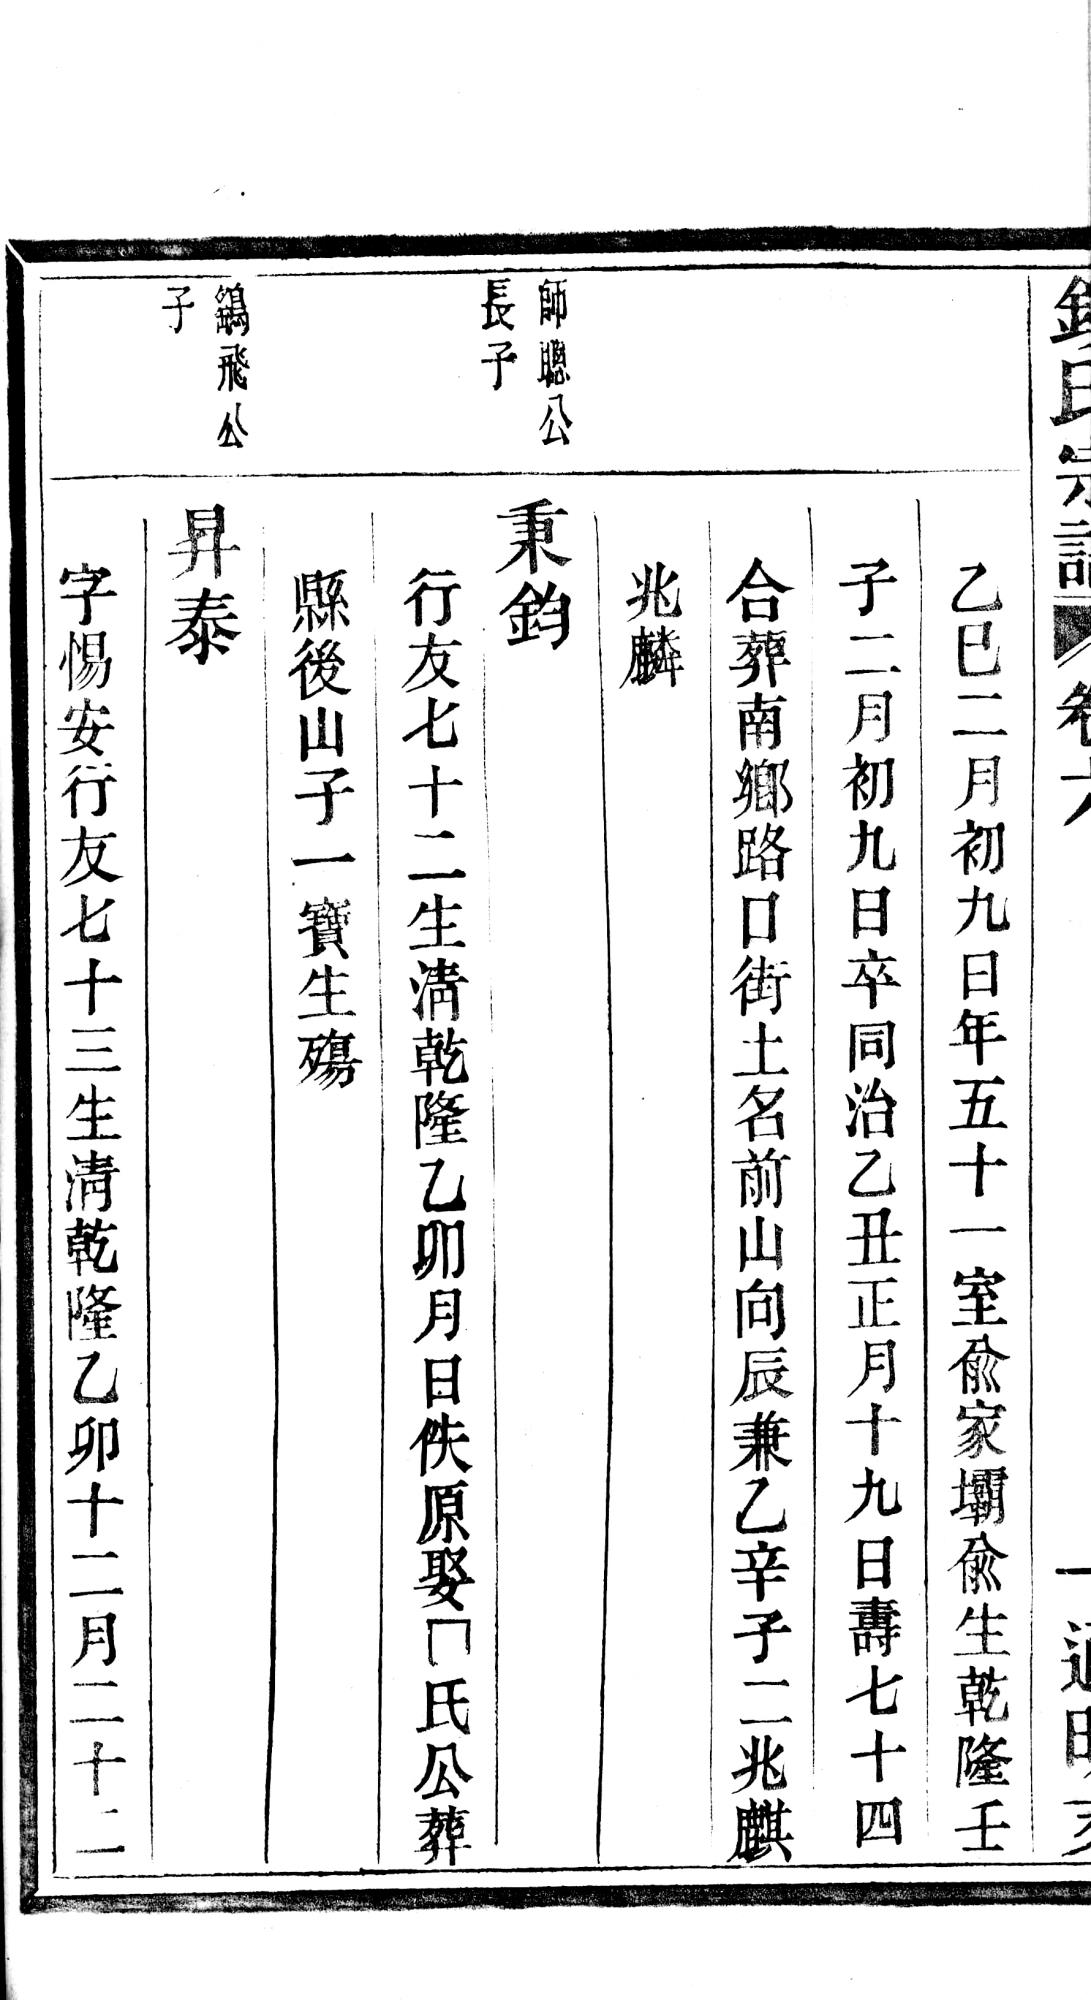 氏宗譜 卷六 一
乙巳二月初九日年五十一室俞家壩俞生乾隆壬
子二月初九日卒同治乙丑正月十九日壽七十四
合葬南鄉路口街土名前山向辰兼乙辛子二兆麒
兆麟
師聰公
長子
秉鈞
行友七十二生清乾隆乙卯月日佚原娶囗氏公葬
縣後山子一寶生殤
鷂飛公
子
昇泰
字惕安行友七十三生清乾隆乙卯十二月二十二